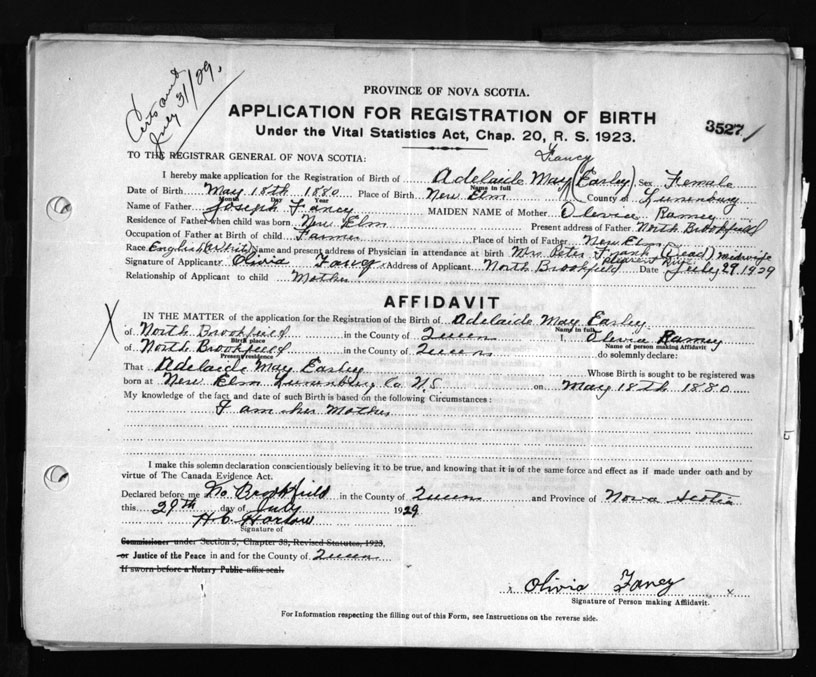 Certs sent
July 31/29.
PROVINCE OF NOVA SCOTIA.
APPLICATION FOR REGISTRATION OF BIRTH
3527
Under the Vital Statistics Act, Chap. 20, R. S. 1923.
TO THE REGISTRAR GENERAL OF NOVA SCOTIA:
Fancy
I hereby make application for the Registration of Birth of Adelaide May (Easley) Sex Female
Name in full
Date of Birth May 18th 1880 Place of Birth New Elm County of Lunenburg
Month Day Year
Name of Father Joseph Fancy MAIDEN NAME of Mother Olevia Ramey
Residence of Father when child was born New Elm Present address of Father North Brookfield
Occupation of Father at Birth of child Farmer Place of birth of Father New Elm
Race English (White) Name and present address of Physician in attendance at birth Mrs Peter Frank (Dead) Midwife
Pleasant River
Signature of Applicant Olivia Fancy Address of Applicant North Brookfield Date July 29 1929
Relationship of Applicant to child Mother
AFFIDAVIT
IN THE MATTER of the application for the Registration of the Birth of Adelaide May Easley
Name in full
of North Brookfield in the County of Queens I, Olevia Ramey
Birth place Name of person making Affidavit
of North Brookfield in the County of Queens do solemnly declare:
Present residence
That Adelaide May Easley Whose Birth is sought to be registered was
born at New Elm Lunenburg Co N.S on May 18th 1880
My knowledge of the fact and date of such Birth is based on the following Circumstances:
I am her Mother
I make this solemn declaration conscientiously believing it to be true, and knowing that it is of the same force and effect as if made under oath and by
virtue of The Canada Evidence Act.
Declared before me No. Brookfield in the County of Queens and Province of Nova Scotia
this 29th day of July 1929
H. C. Harlow
Signature of
Commissioner under Section 5, Chapter 38, Revised Statutes, 1923,
or Justice of the Peace in and for the County of Queens
If sworn before a Notary Public affix seal.
x Olivia Fancy x
Signature of Person making Affidavit.
For Information respecting the filling out of this Form, see Instructions on the reverse side.